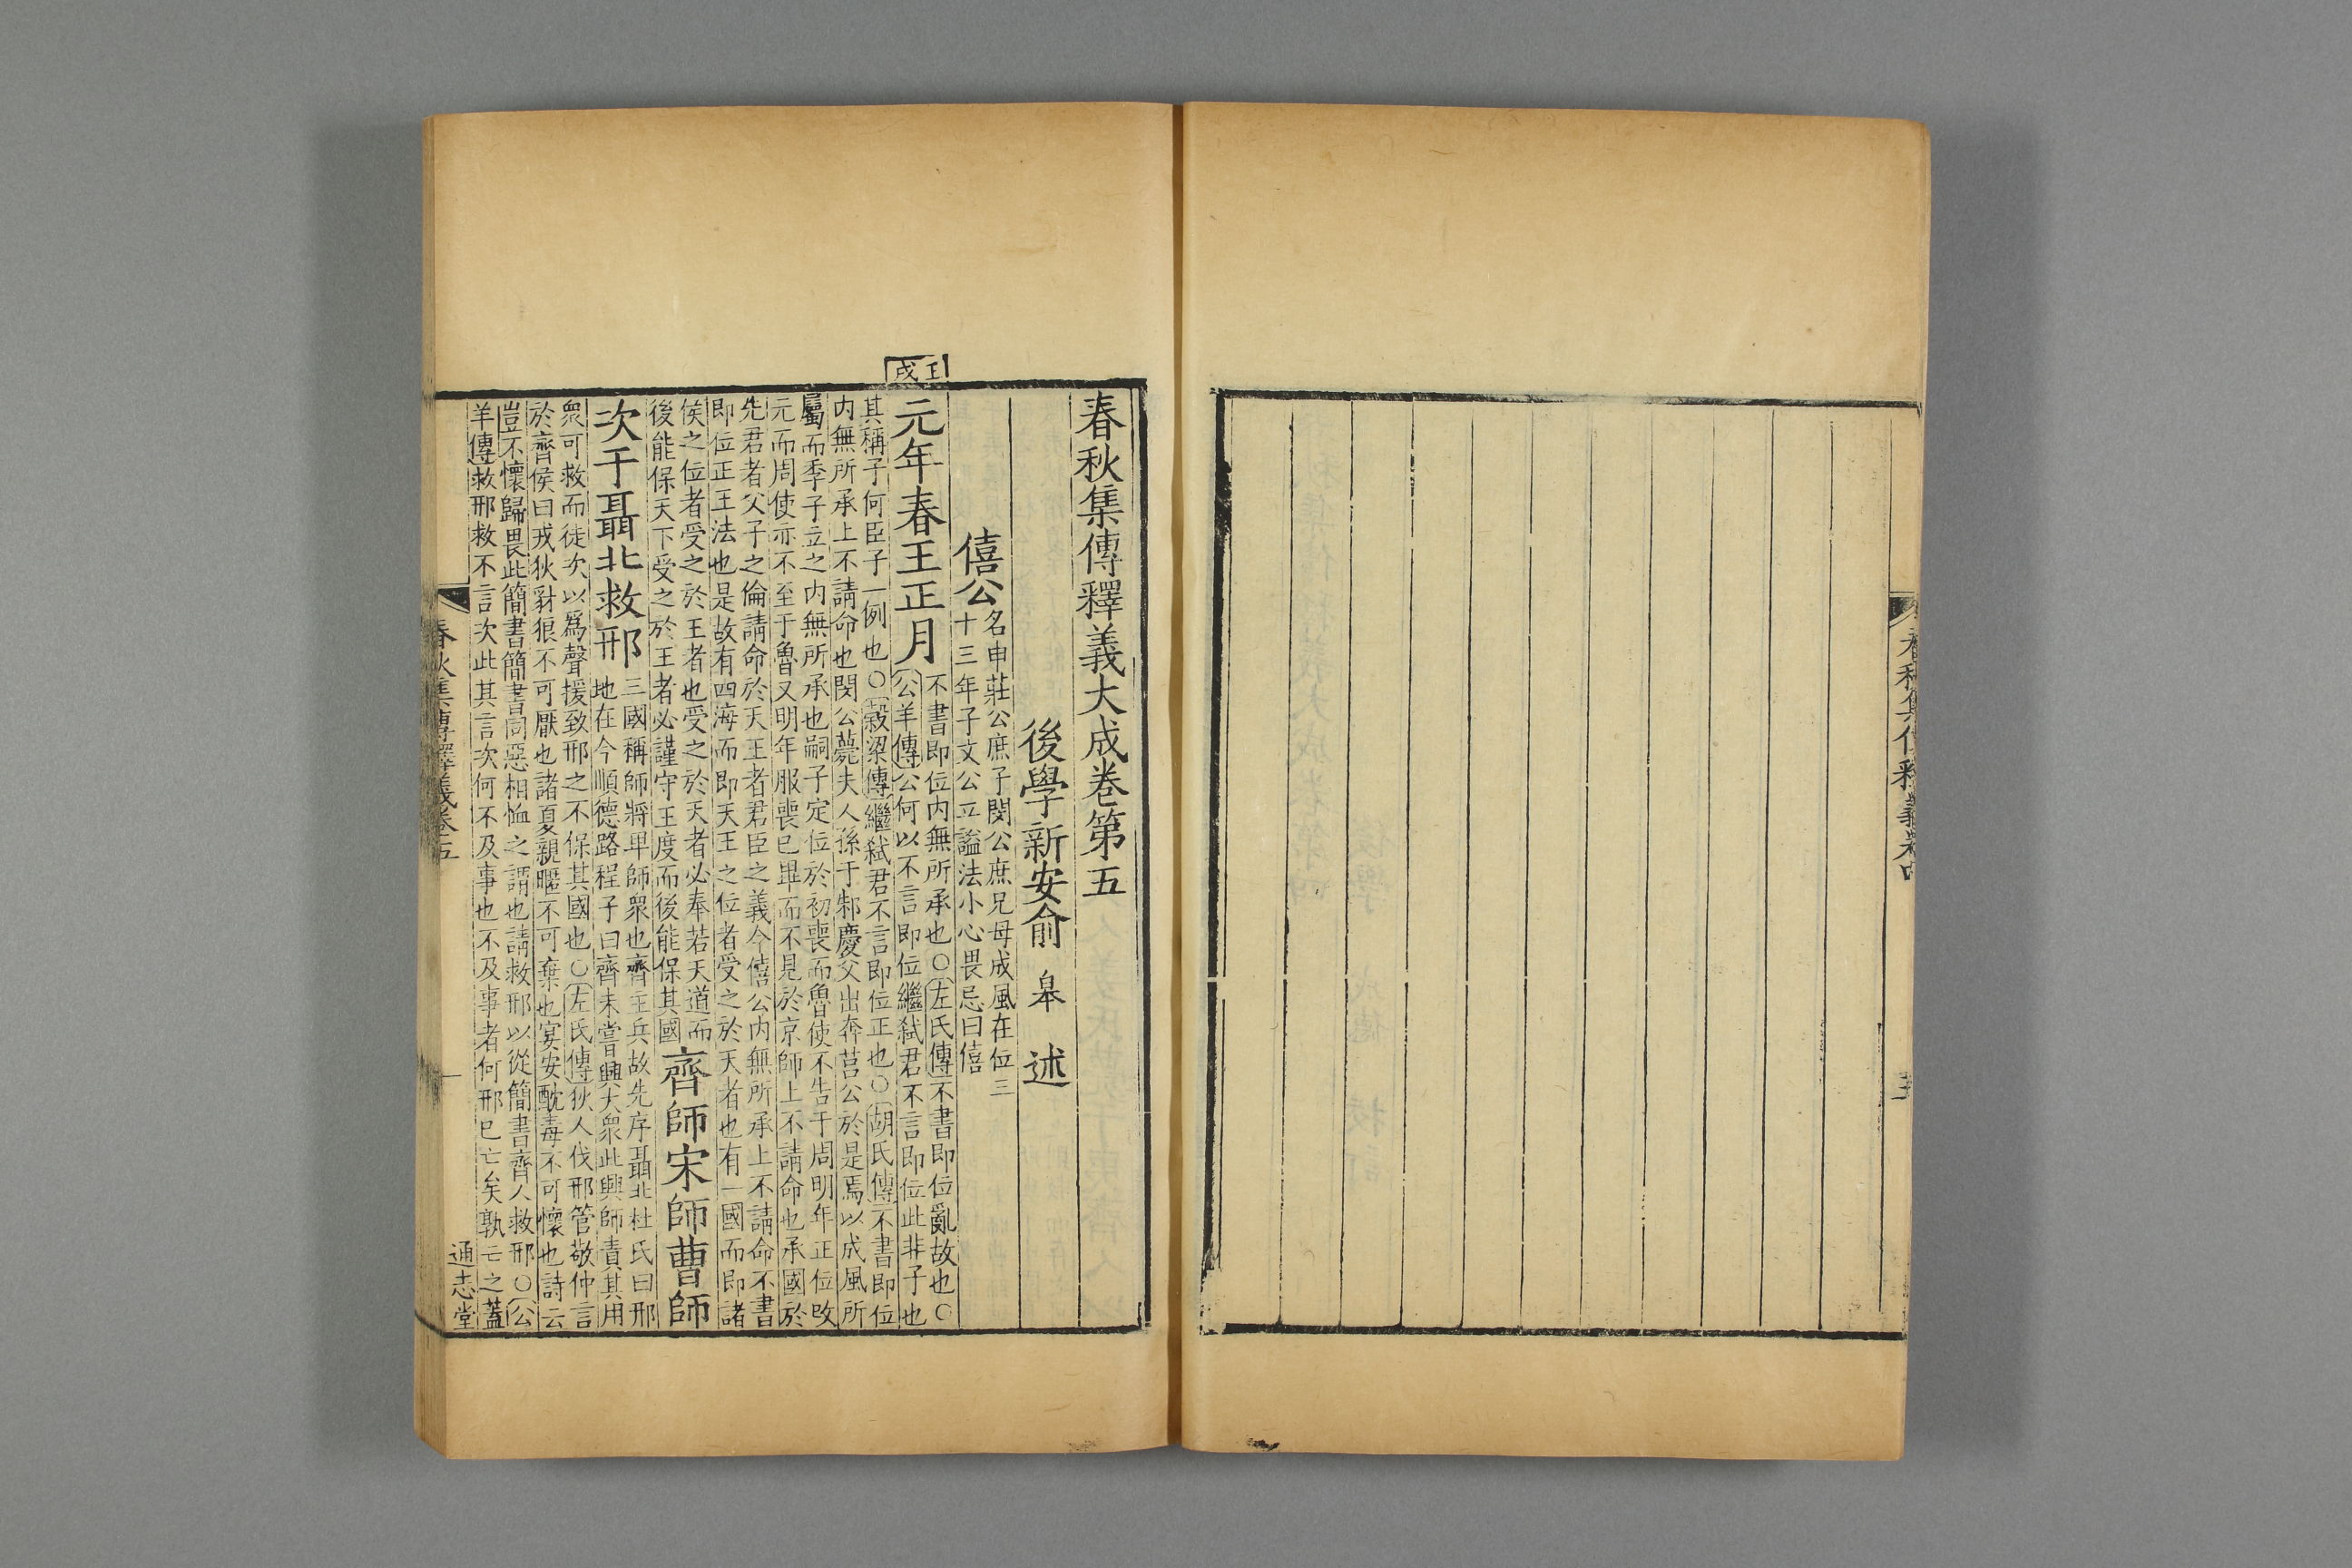 春秋集傳釋義卷四
春秋集傳釋義大成卷第五
後學新安俞 皋 述
僖公
名申莊公庶子閔公庶兄母成風在位三
十三年子文公立謚法小心畏忌曰僖
壬戌
元年春王正月
不書即位内無所承也○左氏傳不書即位亂故也○
公羊傳公何以不言即位繼弑君不言即位此非子也
其稱子何臣子一例也○穀梁傳繼弑君不言即位正也○胡氏傳不書即位
内無所承上不請命也閔公薨夫人孫于邾慶父出奔莒公於是焉以成風所
屬而季子立之内無所承也嗣子定位於初喪而魯使不告于周明年正位改
元而周使亦不至于魯又明年服喪已畢而不見於京師上不請命也承國於
先君者父子之倫請命於天王者君臣之義今僖公内無所承上不請命不書
即位正王法也是故有四海而即天王之位者受之於天者也有一國而即諸
侯之位者受之於王者也受之於天者必奉若天道而
後能保天下受之於王者必謹守王度而後能保其國
齊師宋師曹師
次于聶北救邢
三國稱師將卑師衆也齊主兵故先序聶北杜氏曰邢
地在今順德路程子曰齊未嘗興大衆此興師責其用
衆可救而徒次以爲聲援致邢之不保其國也○左氏傳狄人伐邢管敬仲言
於齊侯曰戎狄豺狼不可厭也諸夏親暱不可棄也宴安酖毒不可懷也詩云
豈不懷歸畏此簡書簡書同惡相恤之謂也請救邢以從簡書齊人救邢○公
羊傳救邢救不言次此其言次何不及事也不及事者何邢已亡矣孰亡之蓋
春秋集傳釋義卷五
一
通志堂